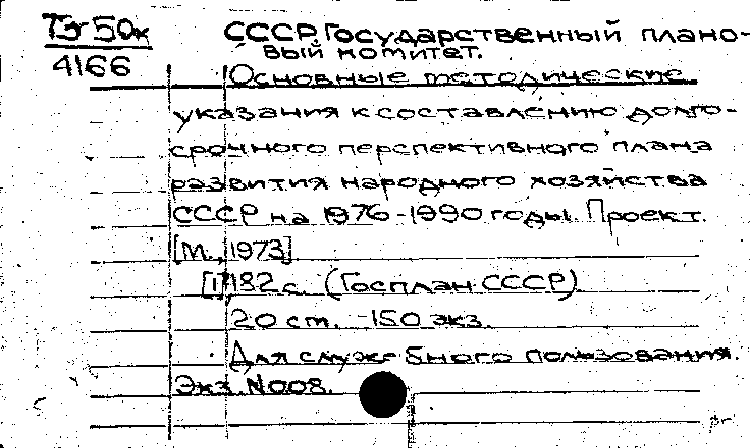 Тэг50к
4166
СССР. Государственный плано-
вый комитет.
Основные методические
указания к составлению долго-
срочного перспективного плана
развития народного хозяйства
СССР на 1976-1990 годы. Проект.
[М., 1973]
[1], 182 с. (Госплан СССР)
20 см. - 150 экз.
Для служебного пользования.
Экз. N008.